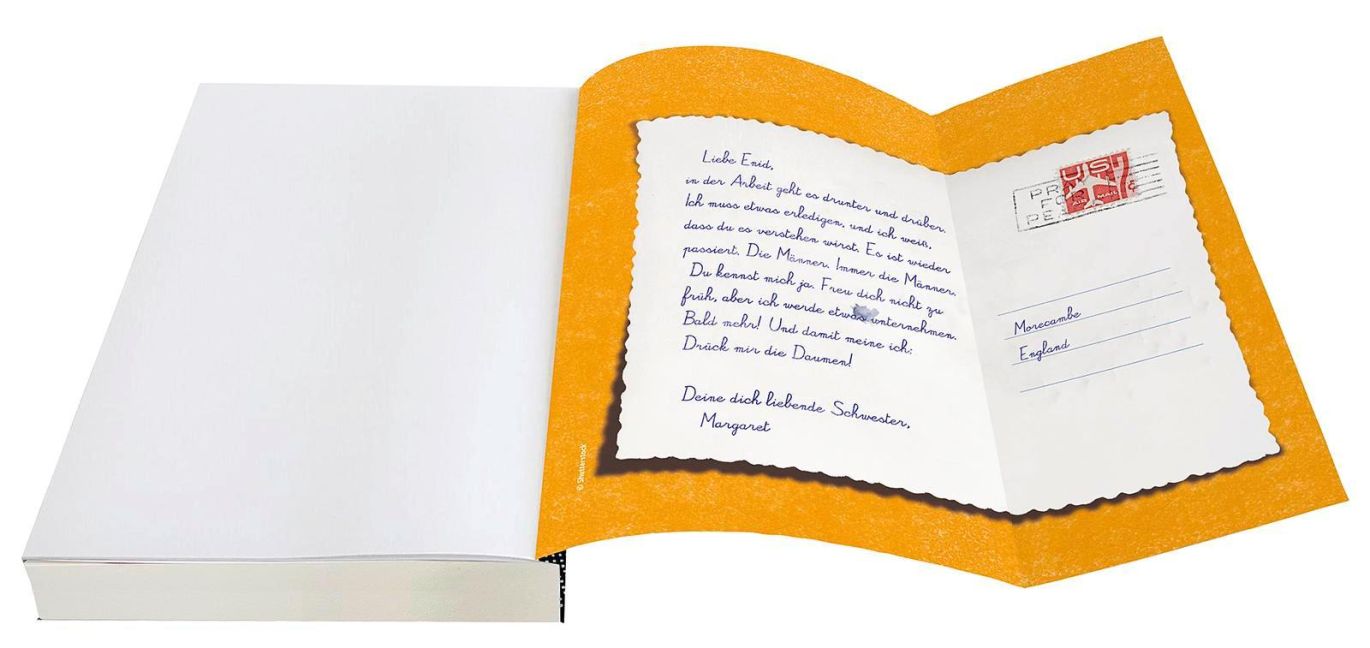 Liebe Enid,
in der Arbeit geht es drunter und drüber.
Ich muss etwas erledigen, und ich weiß,
dass du es verstehen wirst. Es ist wieder
passiert. Die Männer. Immer die Männer.
Du kennst mich ja. Freu dich nicht zu
früh, aber ich werde etwas unternehmen.
Bald mehr! Und damit meine ich:
Drück mir die Daumen!
Deine dich liebende Schwester,
Margaret
© Shutterstock
US 7¢
AIR MAIL
PR
FO
PE
Morecambe
England